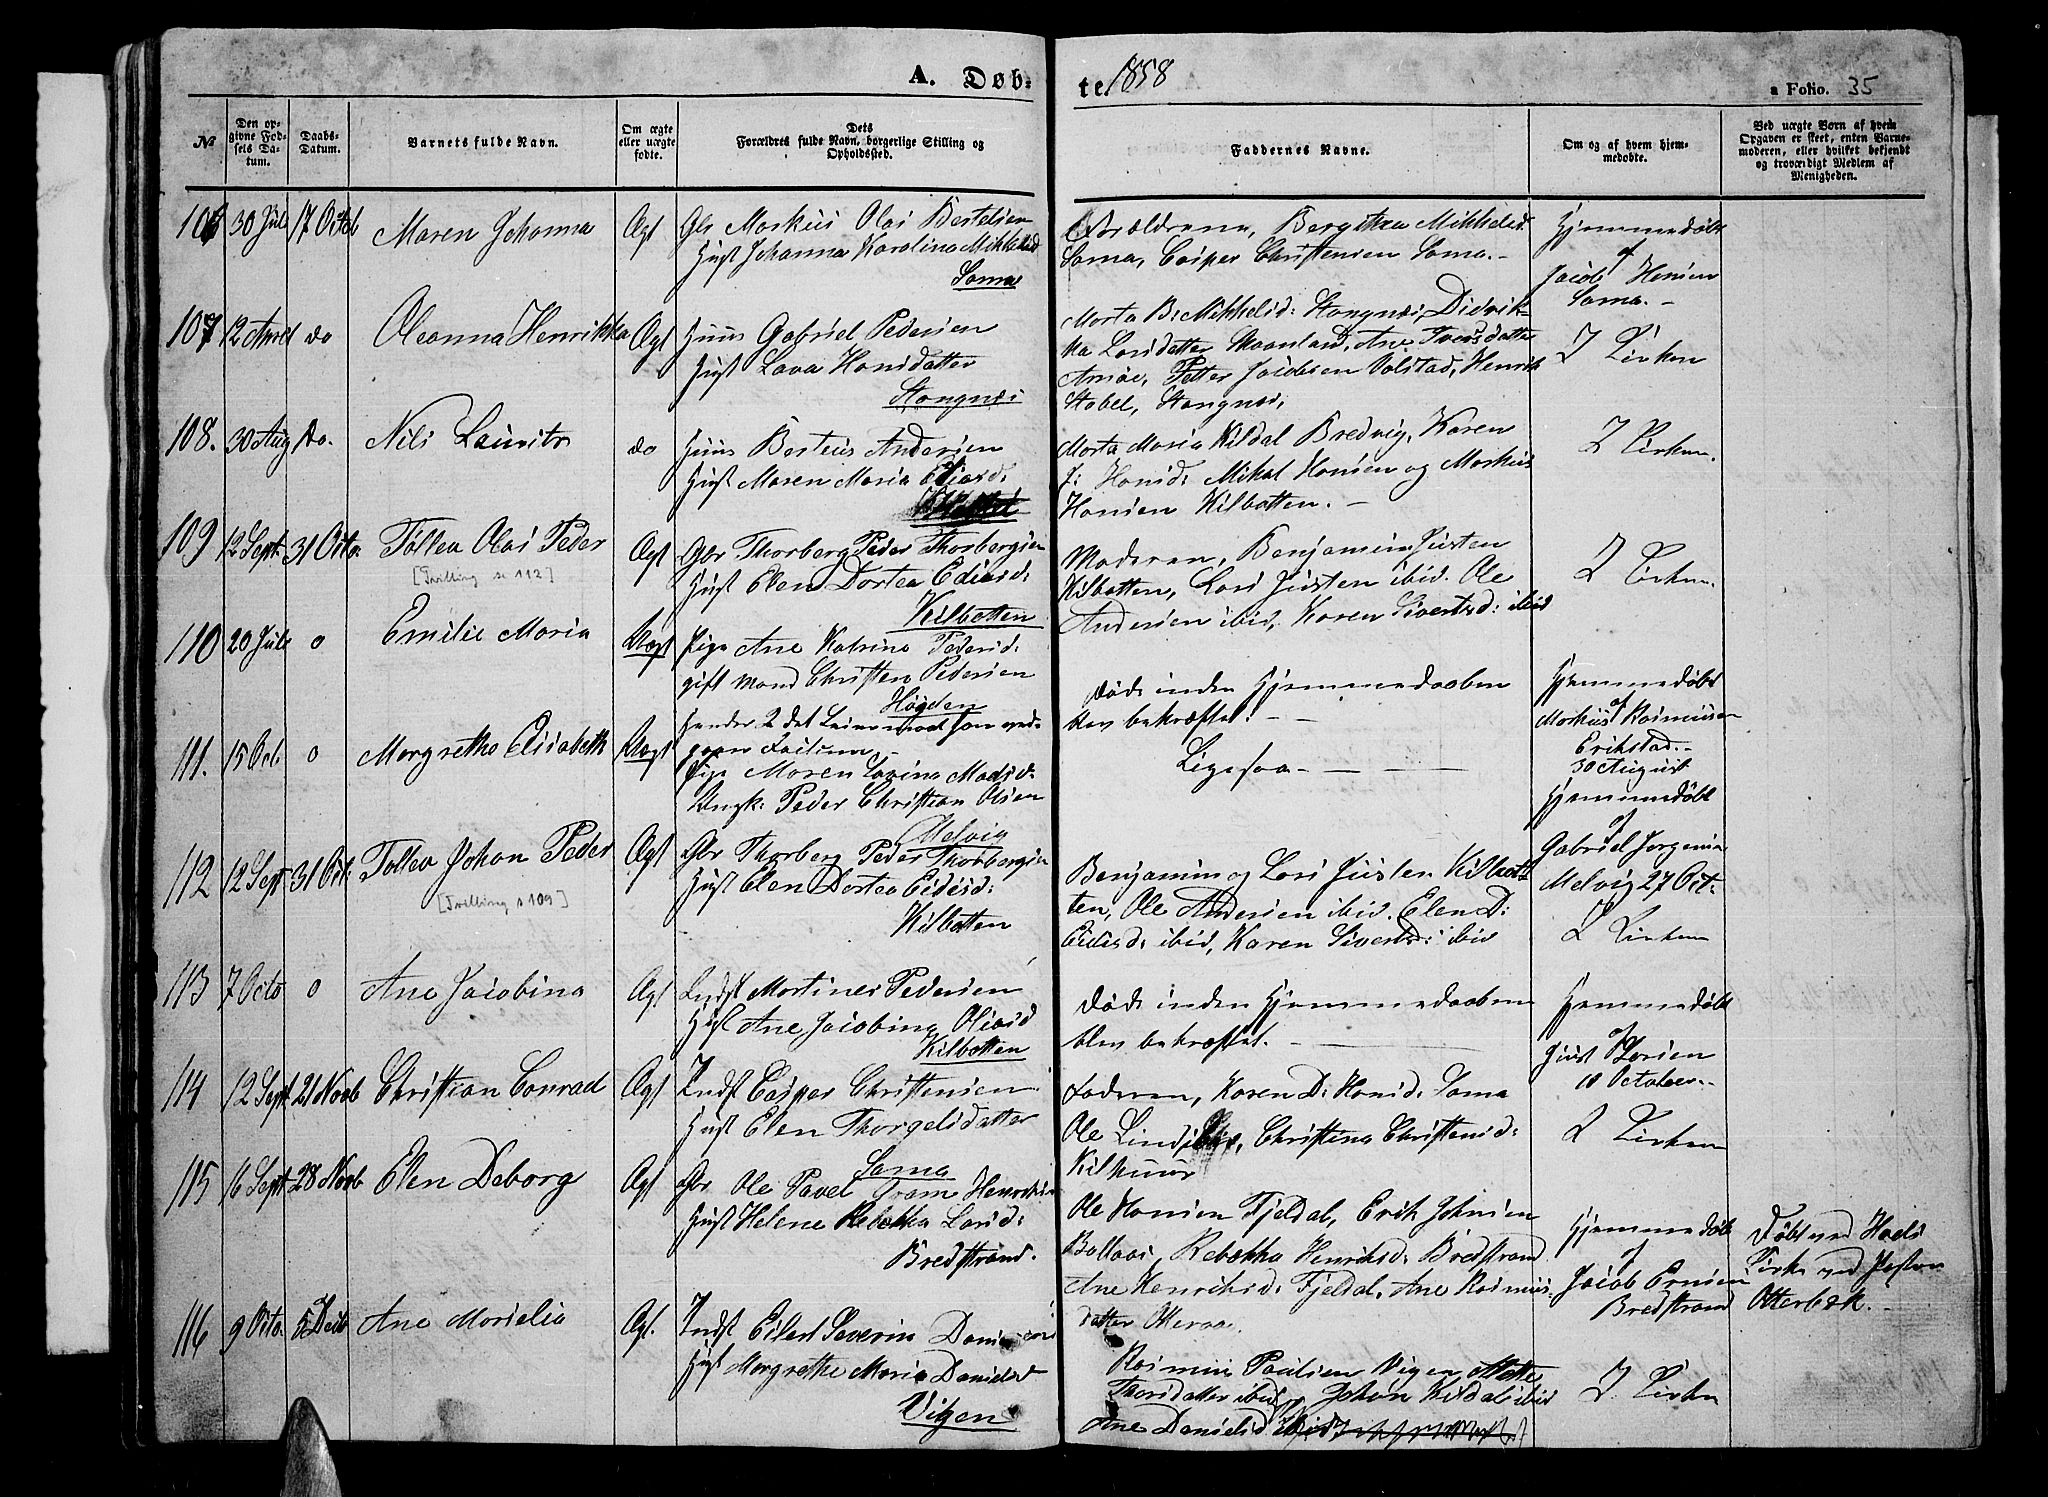 A. Døb-
te. 1858
a Folio. 35
№
Den op-
givne Fød-
sels Da-
tum.
Daabs-
Datum.
Barnets fulde Navn.
Om ægte
eller uægte
fødte.
Dets
Forældres fulde Navn, borgerlige Stilling og
Opholdssted.
Faddernes Navne.
Om og af hvem hjem-
medøbte.
Ved uægte Børn af hvem
Opgaven er skeet, enten Barne-
moderen, eller hvilket bekjendt
og troværdigt Medlem af
Menigheden.
106 30 Juli 17 Octob Maren Johanna Ægt
Gbr Markus Olai Bertelsen
Hust Johanna Karolina Mikkelsd
Sama
Forældrene, Bergitha Mikkelsd:
Sama, Casper Christensen Sama. -
Hjemmedøbt
af
Jacob Hansen
Sama. -
107 12 do Oleanna Henrikka Ægt
Huus Gabriel Pedersen
Hust Lava Hansdatter
Stangnæs
Marta B: Mikkelsd: Stangnæs, Didrik-
ka Larsdatter Maanland, Ane Iversdatter
Petter Jacobsen Volstad, Henrik
Stabel, Stangnæs.
I Kirken
108. 30 Aug do. Nils Lauritz do
Huus Berteus Andersen
Hust Maren Maria Eliasd:
Marta Maria Kildal Bredvig, Karen
J: Hansd: Mikal Hansen og Markus
Hansen Kilbotten. -
I Kirken.
109 12 Sept. 31 Octo. Tollev Olai Peder Ægt
[Tvilling se 112]
Gbr Thorberg Peder Thorbergsen
Hust Elen Dortea Ediasd:
Kilbotten
Moderen, Benjamin Justen
Kilbotten, Lars Justen ibid. Ole
Andersen ibid, Karen Sivertsd: ibid
I Kirken.
110 20 Juli o Emilie Maria Uægt
Pige Ane Katrina Pedersd:
gift Mand Christen Pedersen
Høgden
Døde inden Hjemmedaaben
blev bekræftet. - -
Hjemmedøbt
af
Markus Rasmussen
Erikstad. -
30 August
111. 15 Oct. o Margrethe Elisabeth Uægt
Pige Maren Lovina Madsd:
Ungk: Peder Christian Olsen
Melvig
Ligesaa - - - -
Hjemmedøbt
af
Gabriel Jørgensen
Melvig 27 Oct.
112 12 Sept 31 Oct. Tollev Johan Peder Ægt
[Tvilling s 109]
Gbr Thorberg Peder Thorbergsen
Hust Elen Dortea Eidisd:
Kilbotten
Benjamin og Lars Justen Kilbot-
ten, Ole Andersen ibid. Elen D:
Eidisd: ibid, Karen Sivertsd: ibid
I Kirken
113 7 Octo o Ane Jacobina Ægt
Indst Martines Pedersen
Hust Ane Jacobina Oliasd
Kilbotten
Døde inden Hjemmedaaben
blev bekræftet. -
Hjemmedøbt
af
Just
10 October. -
114 12 Sept 21 Novb Christian Conrad Ægt
Indst Casper Christensen
Hust Elen Thorgelsdatter
Sama
Faderen, Karen D: Hansd: Sama
Ole Christina Christensd:
I Kirken
115 16 Sept 28 Novb Elen Deborg Ægt
Gbr Ole Pavel Gram Henriksen
Hust Helene Rebekka Larsd:
Bredstrand.
Ole Hansen Fjeldal, Erik Johnsen
Rebekka Henriksd: Bredstrand
Ane Henriksd: Fjeldal, Ane Rasmus-
datter
Hjemmedøbt
af
Jacob
Bredstrand
Døbt ved Hols
Kirke ved Pastor
Otterbek. -
116 9 Octo. 5 Decb Ane Marselia Ægt.
Indst Eilert Severin
Hust Margrethe Maria Danielsd
Vigen
Rasmus Paulsen Vigen, Mette
Thorsdatter ibid, Johan Kildal ibid
Ane Danielsd ibid,
I Kirken